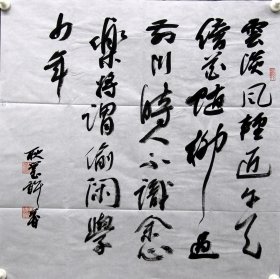 雲淡風輕近午天
傍花隨柳過
前川時人不識余心
樂將謂偷閑學
少年